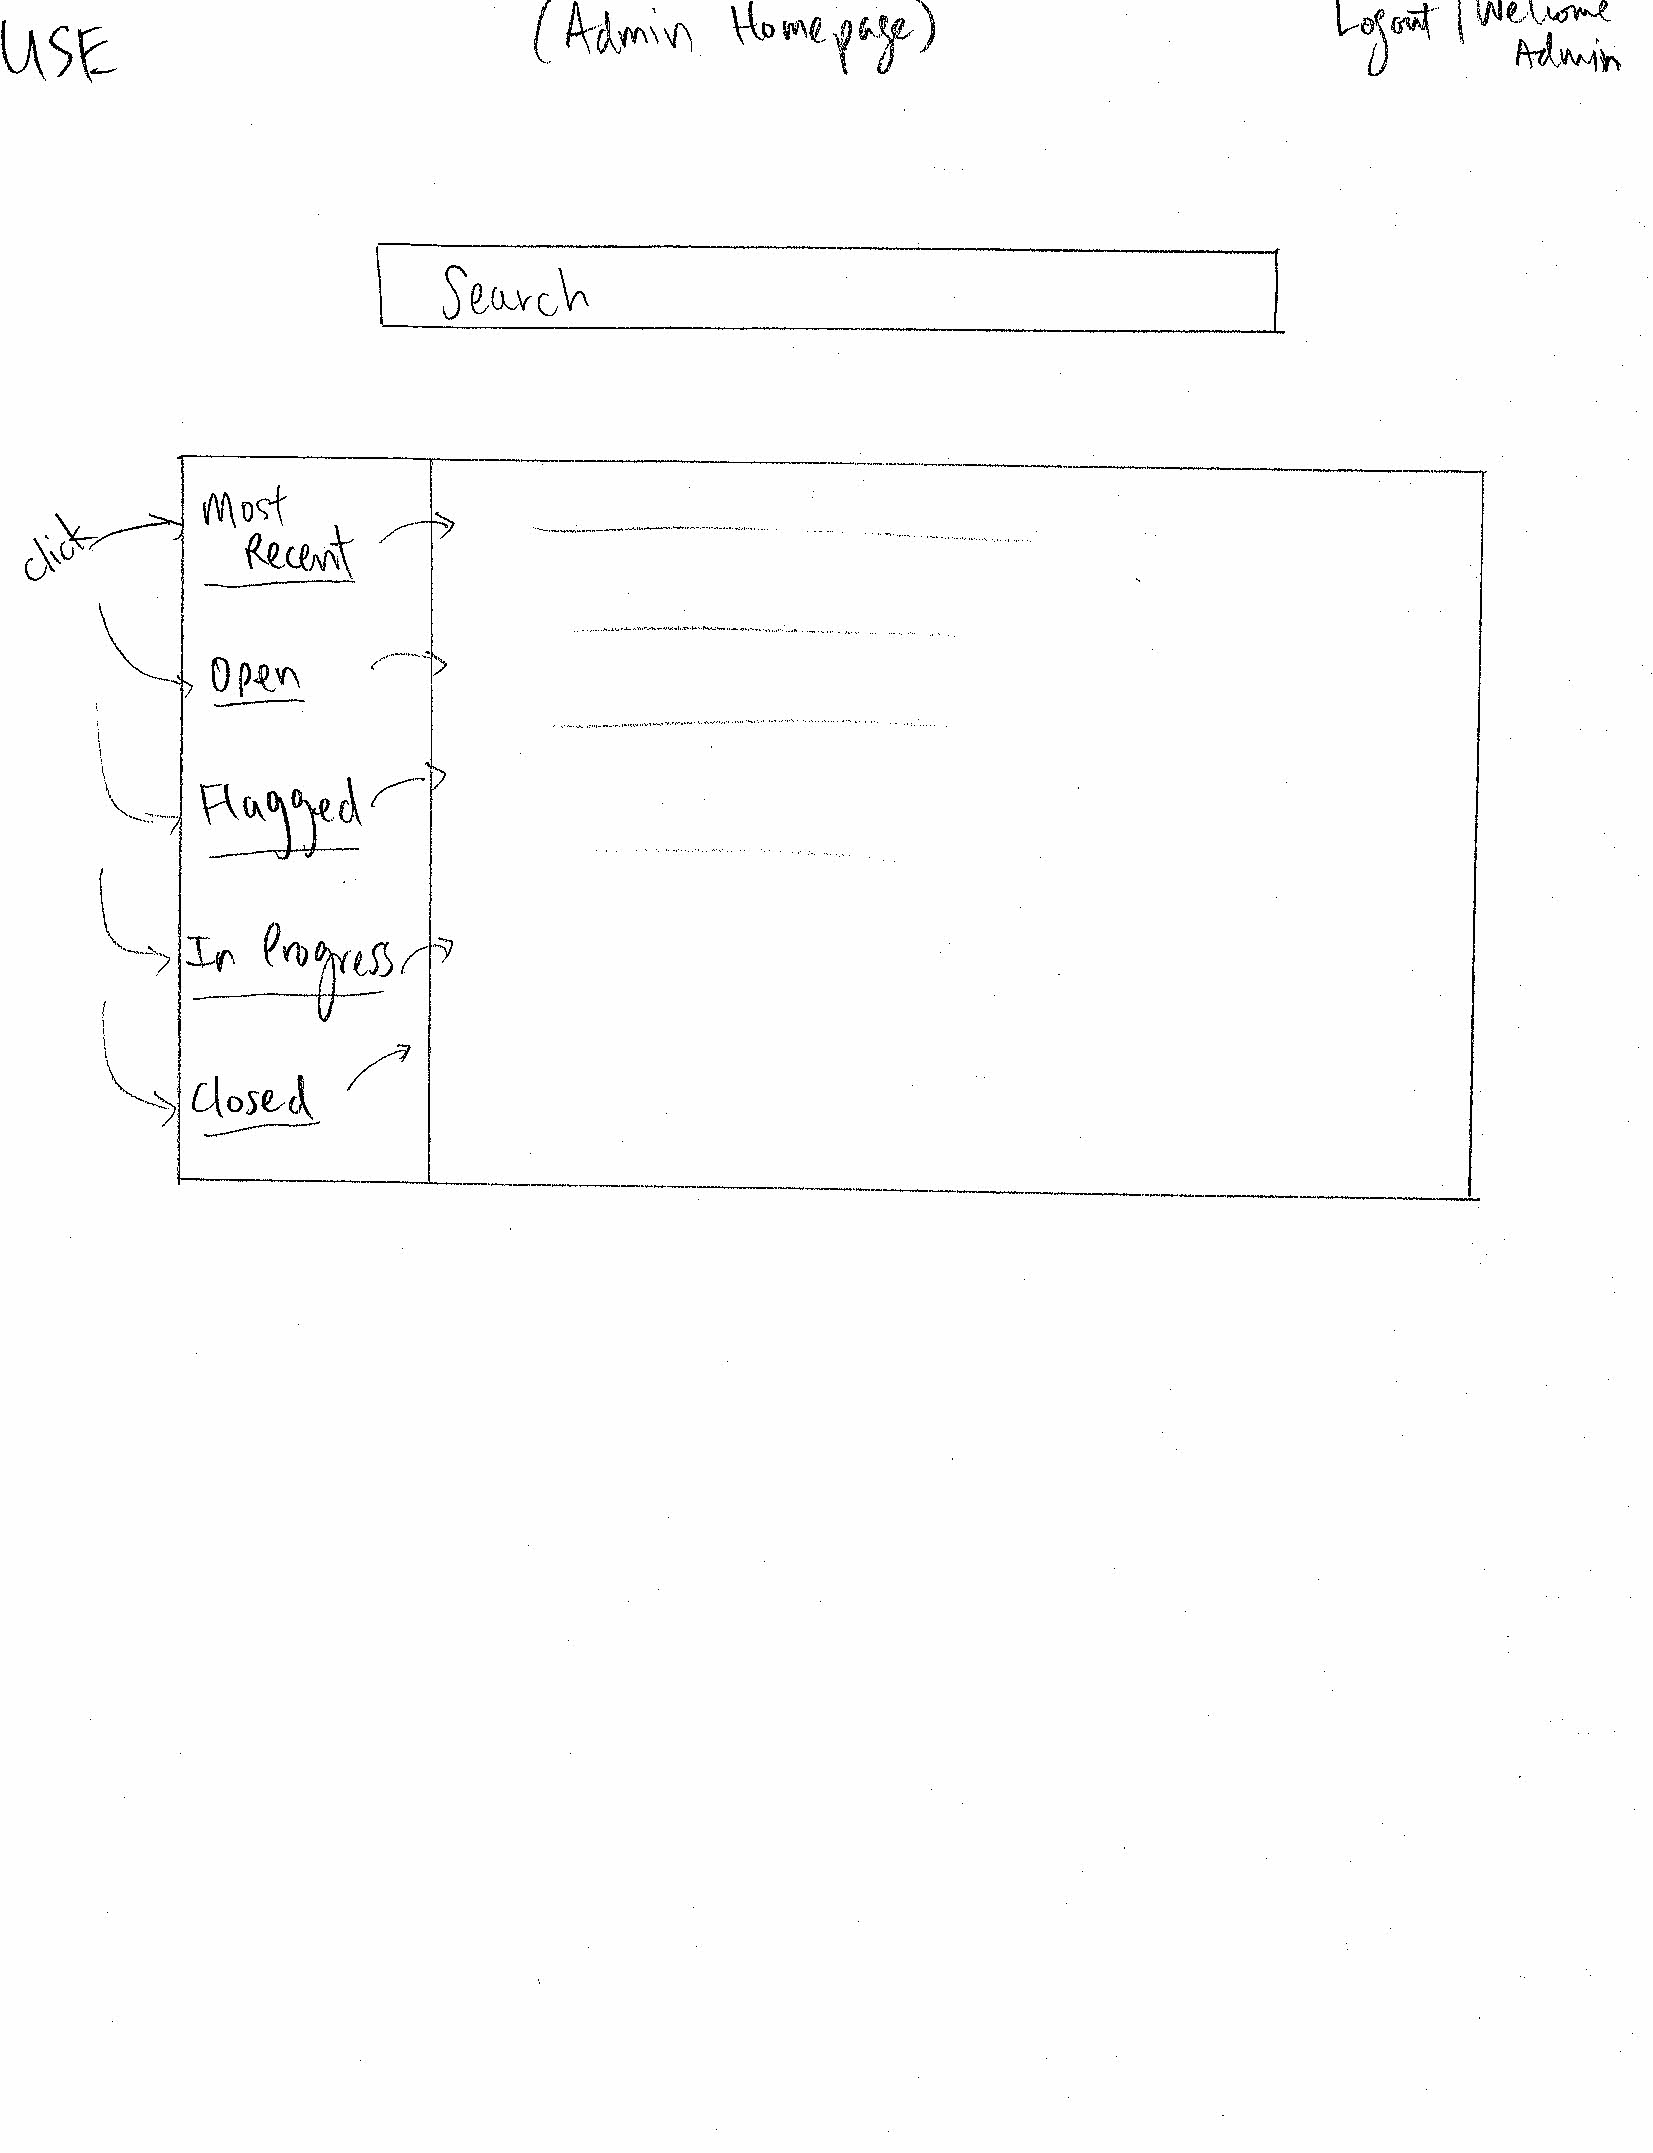 USE
(Admin Homepage)
Logout | Welcome
Admin
Search
click
Most
Recent
Open
Flagged
In Progress
Closed